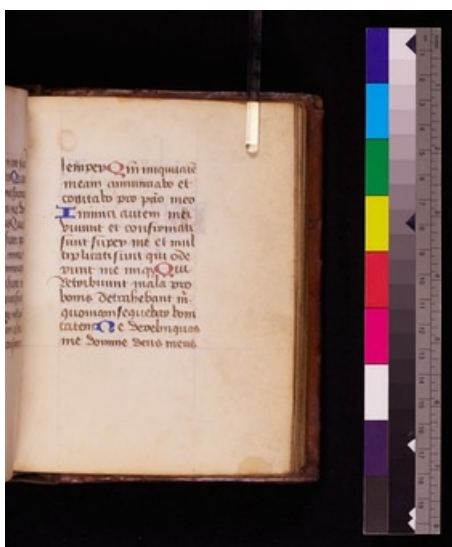 semper Qm iniquitatē
meam annunciabo et
cogitabo pro pc̄o meo
Inimici autem mei
vivunt et confirmati
sunt super me et mul
tiplicati sunt qui ode
runt me iniq̄ Qui
retribuunt mala pro
bonis detrahebant m̄
quoniam sequebar boni
tatem Ne derelinquas
me domine deus meus